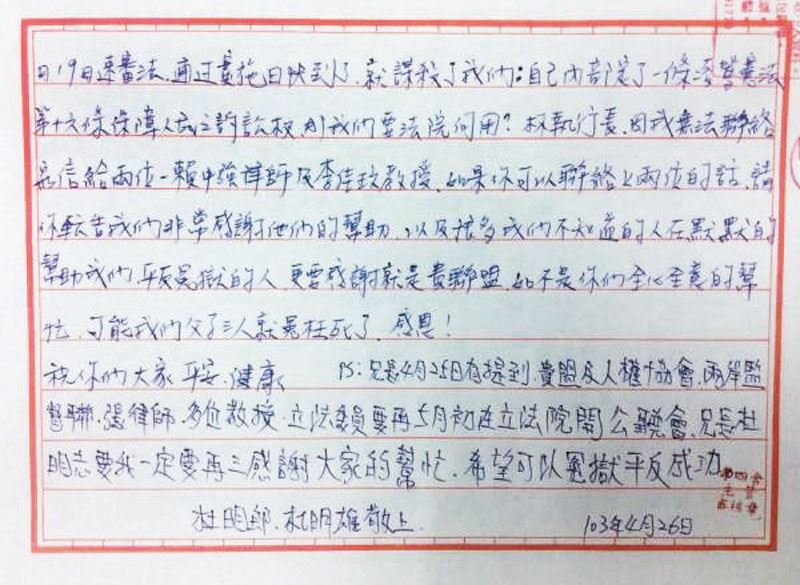 日19日速審法,通过實施日快到了,就謀殺了我們;自己內部院了一條漠營憲法
第十六條保障人民之訴訟权,則我們要法院何用?权執行長,因我無法聯絡
寫信給兩位-賴中強律師及李佳玟教授,如果你可以聯絡上兩位的話,請
你転告我們非常感謝他們的幫助,以及很多我們不知道的人在默默的
幫助我們平反冤獄的人,更要感謝就是貴聯盟,如不是你們全心全意的幫
忙,可能我們父子三人就冤枉死了,感恩!
祝你們大家平安.健康 PS:兄長4月25日有提到,貴盟及人權协會,兩岸監
督聯,張律師,多位教授,立法委員要再5月初在立法院開公聽會,兄長杜
明志要我一定要再三感謝大家的幫忙,希望可以冤獄平反成功
杜明郎.杜明雄敬上. 103年4月26日